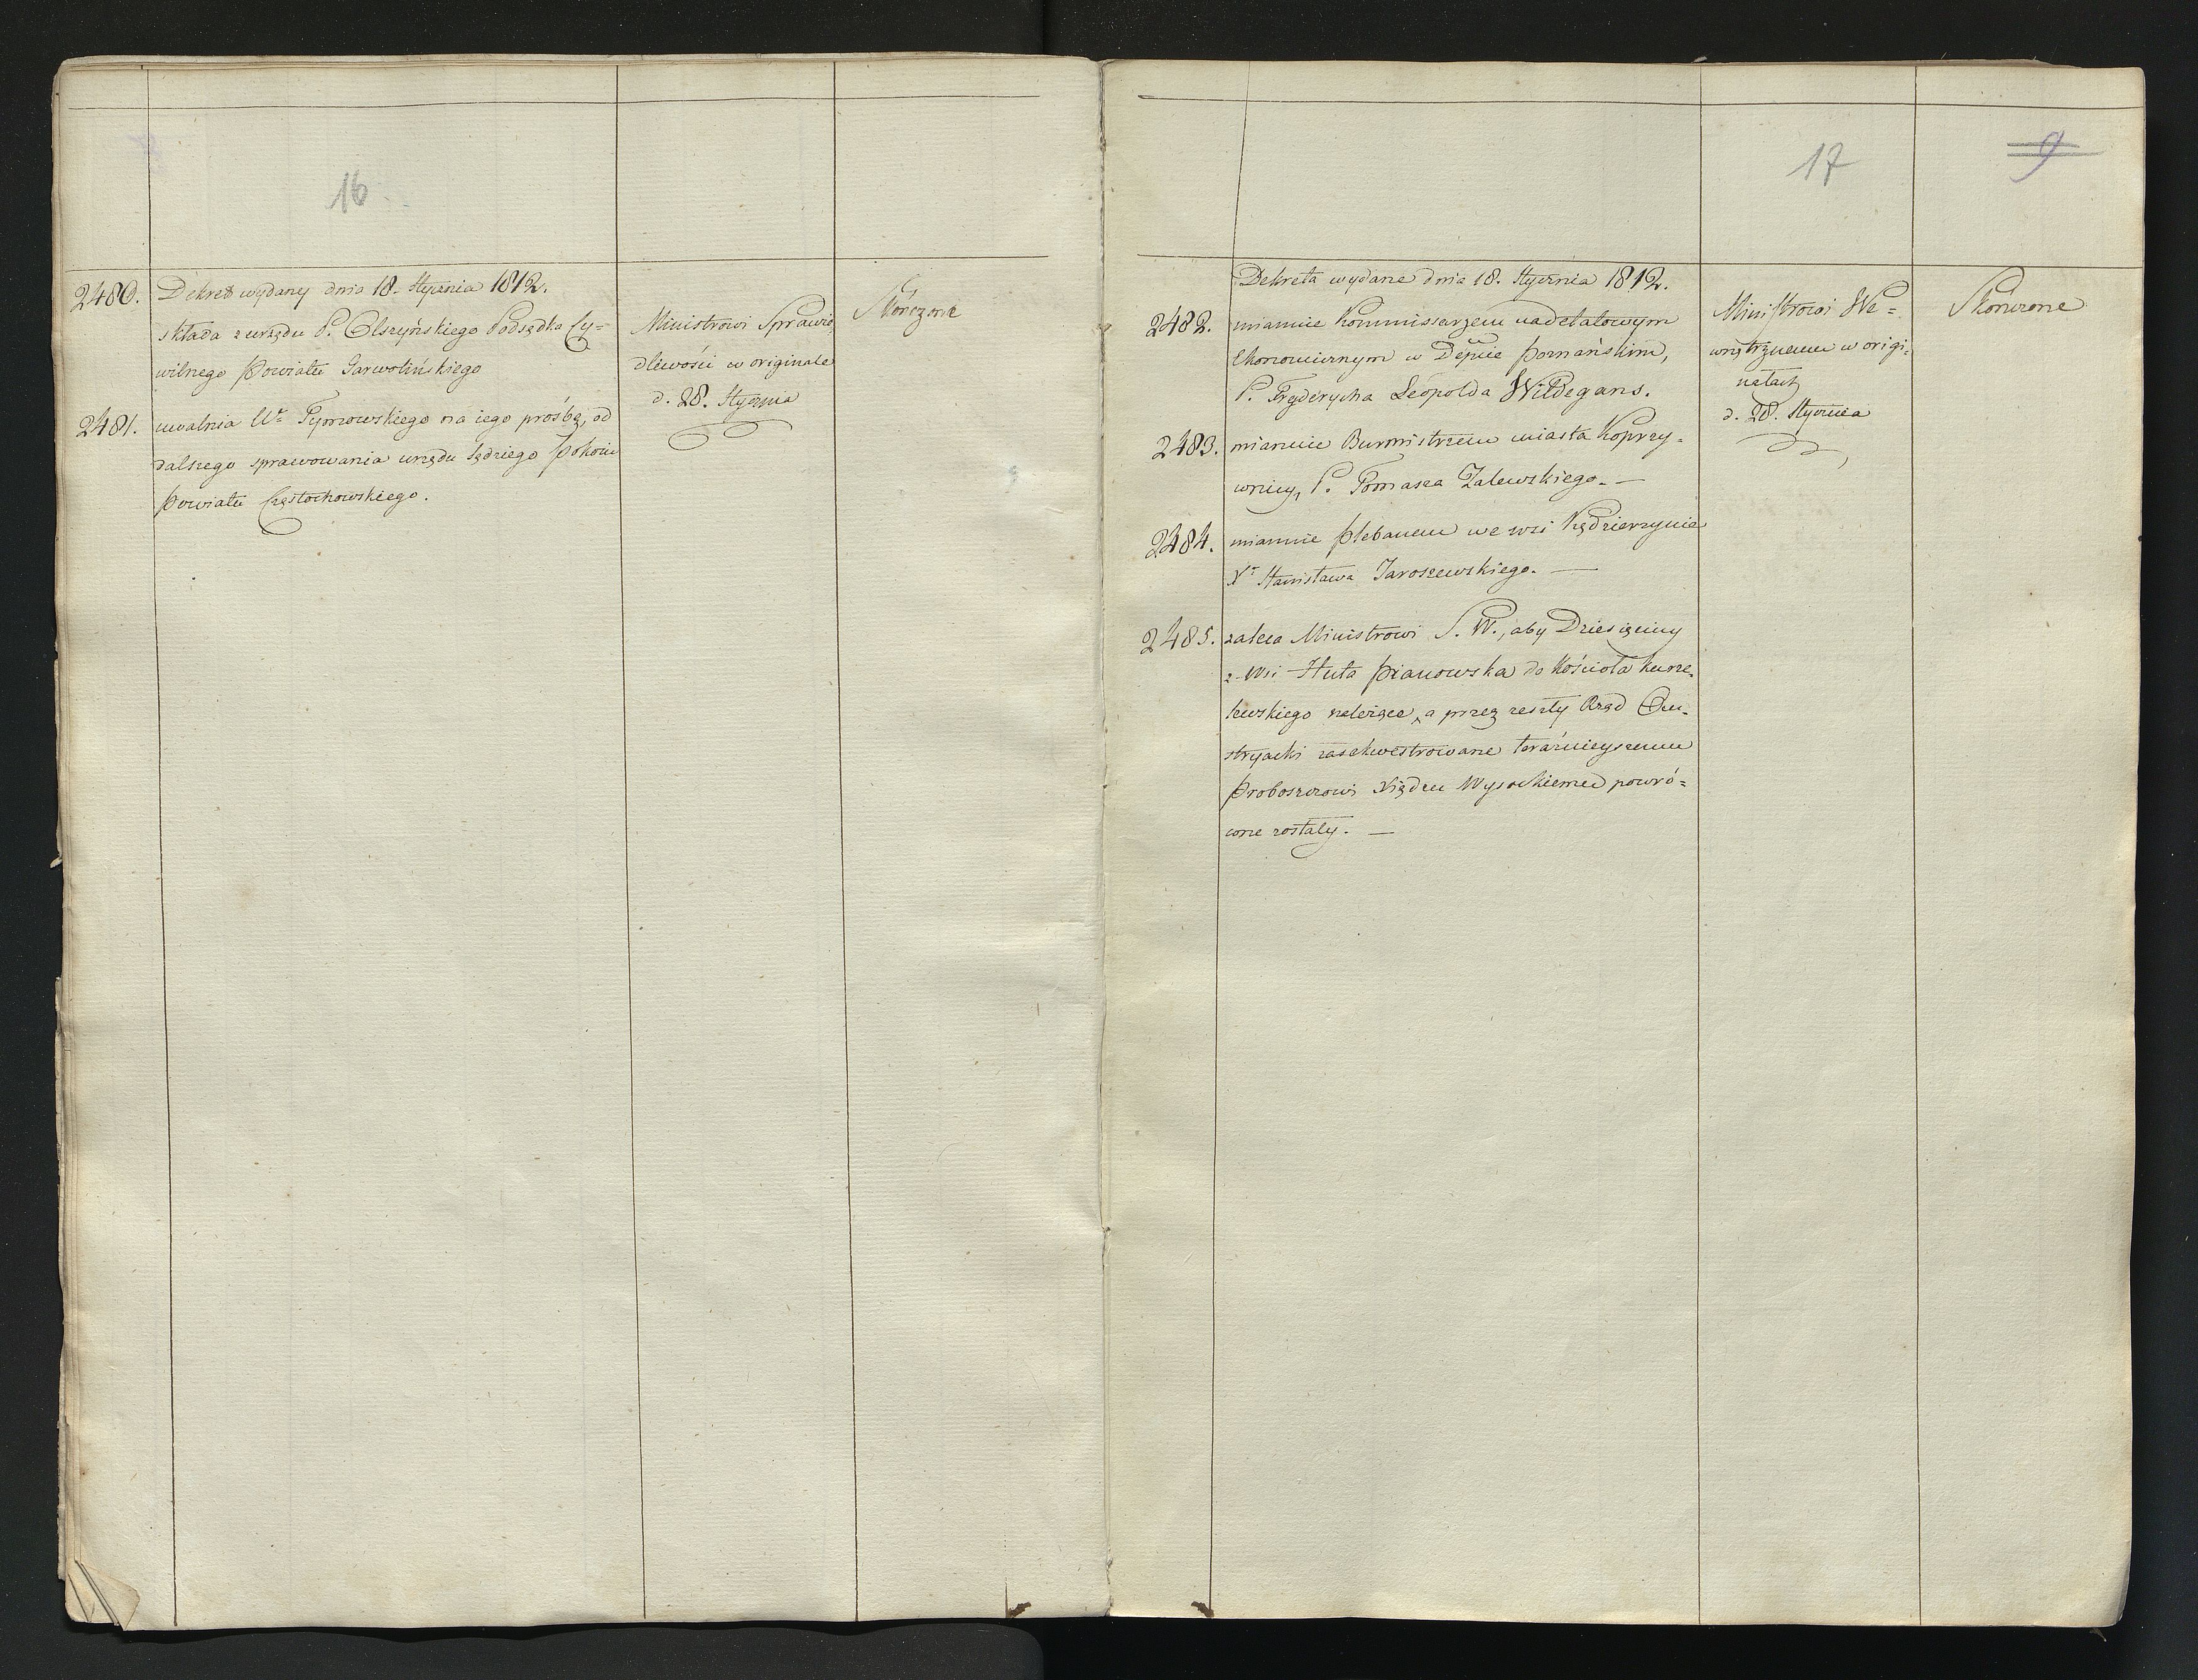 16
2480. Dekret wydany dnia 18. Stycznia 1812.
składa z urzędu P. Olszyńskiego Podsędka Cy=
wilnego Powiatu Garwolińskiego
2481. uwalnia Ur Tymowskiego na iego prośbę, od
dalszego sprawowania urzędu Sędziego Pokoiu
Powiatu Częstochowskiego.
Ministrowi Sprawie
dliwości w originale
d. 28. Stycznia
Skończone
17
9
Dekreta wydane dnia 18. Stycznia 1812.
2482. mianuie Kommissarzem nadetatowym
Ekonomicznym w Depcie Poznańskim,
P. Fryderycha Leopolda Wildegans.
2483. mianuie Burmistrzem miasta Koprzy=
wnicy, P. Tomasza Zalewskiego. —
2484. mianuie Plebanem we wsi Kędzierzynie
Xa Stanisława Jaroszewskiego. —
2485. zaleca Ministrowi S. W., aby Dziesięciny
z Wsi Huta Pianowska do Kościoła Kurze-
lewskiego należące, a przez zeszły Rząd Au-
stryacki zasekwestrowane teraźnieyszemu
Proboszczowi Xiędzu Wysockiemu powró=
cone zostały. —
Ministrowi We=
wnętrznemu w origi=
nałach
d. 28. Stycznia
Skończone